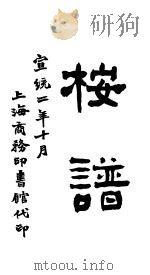 桉譜
宣統二年十月
上海商務印書館代印
mtoou.info